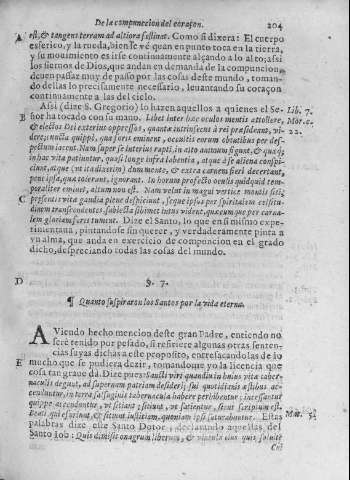 De la compunccion del coraçon. 204
A est, & tangens terram ad altiora festinat. Como si dixera: El cuerpo
esferico, y la rueda, bien se vè que en punto toca en la tierra,
y su mouimiento es irse continuamente alçando a lo alto; assi
los siernos de Dios, que andan en demanda de la compuncion,
deuen passar muy de passo por las cosas deste mundo, toman-
do dellas lo precisamente necessario, leuantando su coraçon
continuamente a las del cielo.
Assi (dize S. Gregorio) lo hazen aquellos a quienes el Se- Lib. 7.
B ñor ha tocado con su mano. Libet inter hæc oculos mentis attollere, Mor. c.
& electos Dei exterius oppressos, quanta intrinsecus à rei præsideant, vi- 22.
dere; nuncta quippe, qua foris eminent, occultis eorum obtutibus per des-
pectum iacent. Nam super se interius rapti, in alto animum figunt, & quæq;
in hac vita patiuntur, quasi longe infra labentia, atque à se aliena conspi-
ciunt, atque (vt ita dixerim) dum mente, & extra carnem fieri decertant,
pene ipsa, quæ tolerant, ignorant. In horum profecto oculis quidquid tem-
poraliter eminet, altum non est. Nam velut in magni vertice montis siti;
C præsentis vita gaudia plene despiciunt, seque ipsos per spiritalem celsitu-
dinem transcendentes subiecta sibimet intus vident, quæcumque per carna-
lem gloriam foris tument. Dize el Santo, lo que en si mismo expe-
rimentaua, pintandose sin querer, y verdaderamente pinta a
vn alma, que anda en exercicio de compuncion en el grado
dicho, despreciando todas las cosas del mundo.
D §. 7.
¶ Quanto suspiraron los Santos por la vida eterna.
AViendo hecho mencion deste gran Padre, entiendo no
serè tenido por pesado, si refiriere algunas otras senten-
cias suyas dichas a este proposito, entresacandolas de lo
E mucho que se pudiera dezir, tomandome yo la licencia que
cosa tan graue dà. Dize pues: Sancti viri quandiu in huius vita taber-
naculis degunt, ad supernam patriam desiderij sui quotidianis æstibus ac-
cenduntur, in terra
quippe accenduntur, vt sitiant; sitiunt, vt satientur, sicut scriptum est.
Beati qui esuriunt, & sitiunt iustitiam, quoniam ipsi saturabuntur. Estas Mat. 5.
palabras dize este Santo Dotor, declarando aquellas del
Santo Iob: Quis dimisit onagrum liberum, & vincula eius quis soluit?